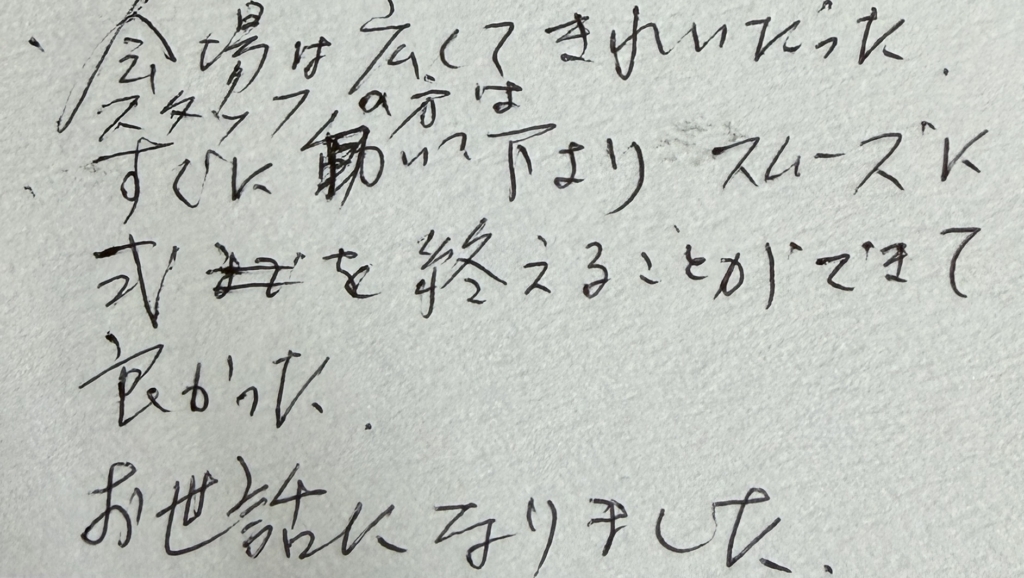 ・会場は広くてきれいだった.
スタッフの方は
・すぐに動いて下さり スムーズに
式を終えることができて
良かった.
お世話になりました.